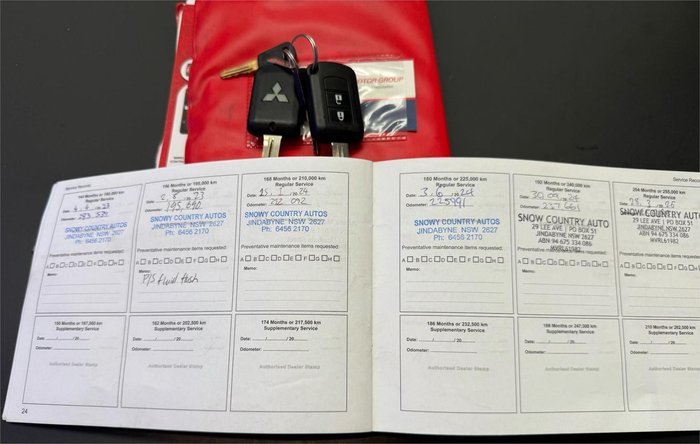 OTOR GROUP
Service Record
180,000 km
Regular Service
Date: 4.4.2023
SNOWY COUNTRY AUTOS
JINDABYNE NSW 2627
Ph: 6456 2170
Preventative maintenance items requested:
A B C D E F G H
Memo:
Months or 195,000 km
Regular Service
Odometer: 195,690
SNOWY COUNTRY AUTOS
JINDABYNE NSW 2627
Ph: 6456 2170
Preventative maintenance items requested:
A B C D E F G H
Memo:
P/S fluid flush
168 Months or 210,000 km
Regular Service
Date: 15.1.2024
Odometer: 212 092
SNOWY COUNTRY AUTOS
JINDABYNE NSW 2627
Ph: 6456 2170
Preventative maintenance items requested:
A B C D E F G H
Memo:
150 Months or 187,500 km
Supplementary Service
Date: / / 20
Odometer:
Authorised Dealer Stamp
162 Months or 202,500 km
Supplementary Service
Date: / / 20
Odometer:
Authorised Dealer Stamp
174 Months or 217,500 km
Supplementary Service
Date: / / 20
Odometer:
Authorised Dealer Stamp
24
Service Reco
180 Months or 225,000 km
Regular Service
Date: 3.6.2024
Odometer: 225991
SNOWY COUNTRY AUTOS
JINDABYNE NSW 2627
Ph: 6456 2170
Preventative maintenance items requested:
A B C D E F G H
Memo:
192 Months or 240,000 km
Regular Service
Date: 30.09.2024
Odometer:
SNOW COUNTRY AUTO
29 LEE AVE | PO BOX 51
JINDABYNE NSW 2627
ABN 94 675 334 086
MVRL61982
Preventative maintenance items requested:
A B C D E F G H
Memo:
204 Months or 255,000
Regular Service
SNOW COUNTRY AUTO
29 LEE AVE | PO BOX 51
JINDABYNE NSW 2627
ABN 94 675 334 086
MVRL61982
Preventative maintenance items requeste
A B C D E F G
Memo:
186 Months or 232,500 km
Supplementary Service
Date: / / 20
Odometer:
Authorised Dealer Stamp
198 Months or 247,500 km
Supplementary Service
Date: / / 20
Odometer:
Authorised Dealer Stamp
210 Months or 262,50
Supplementary Servic
Date: / / 20
Odometer:
Authorised Dealer Stamp